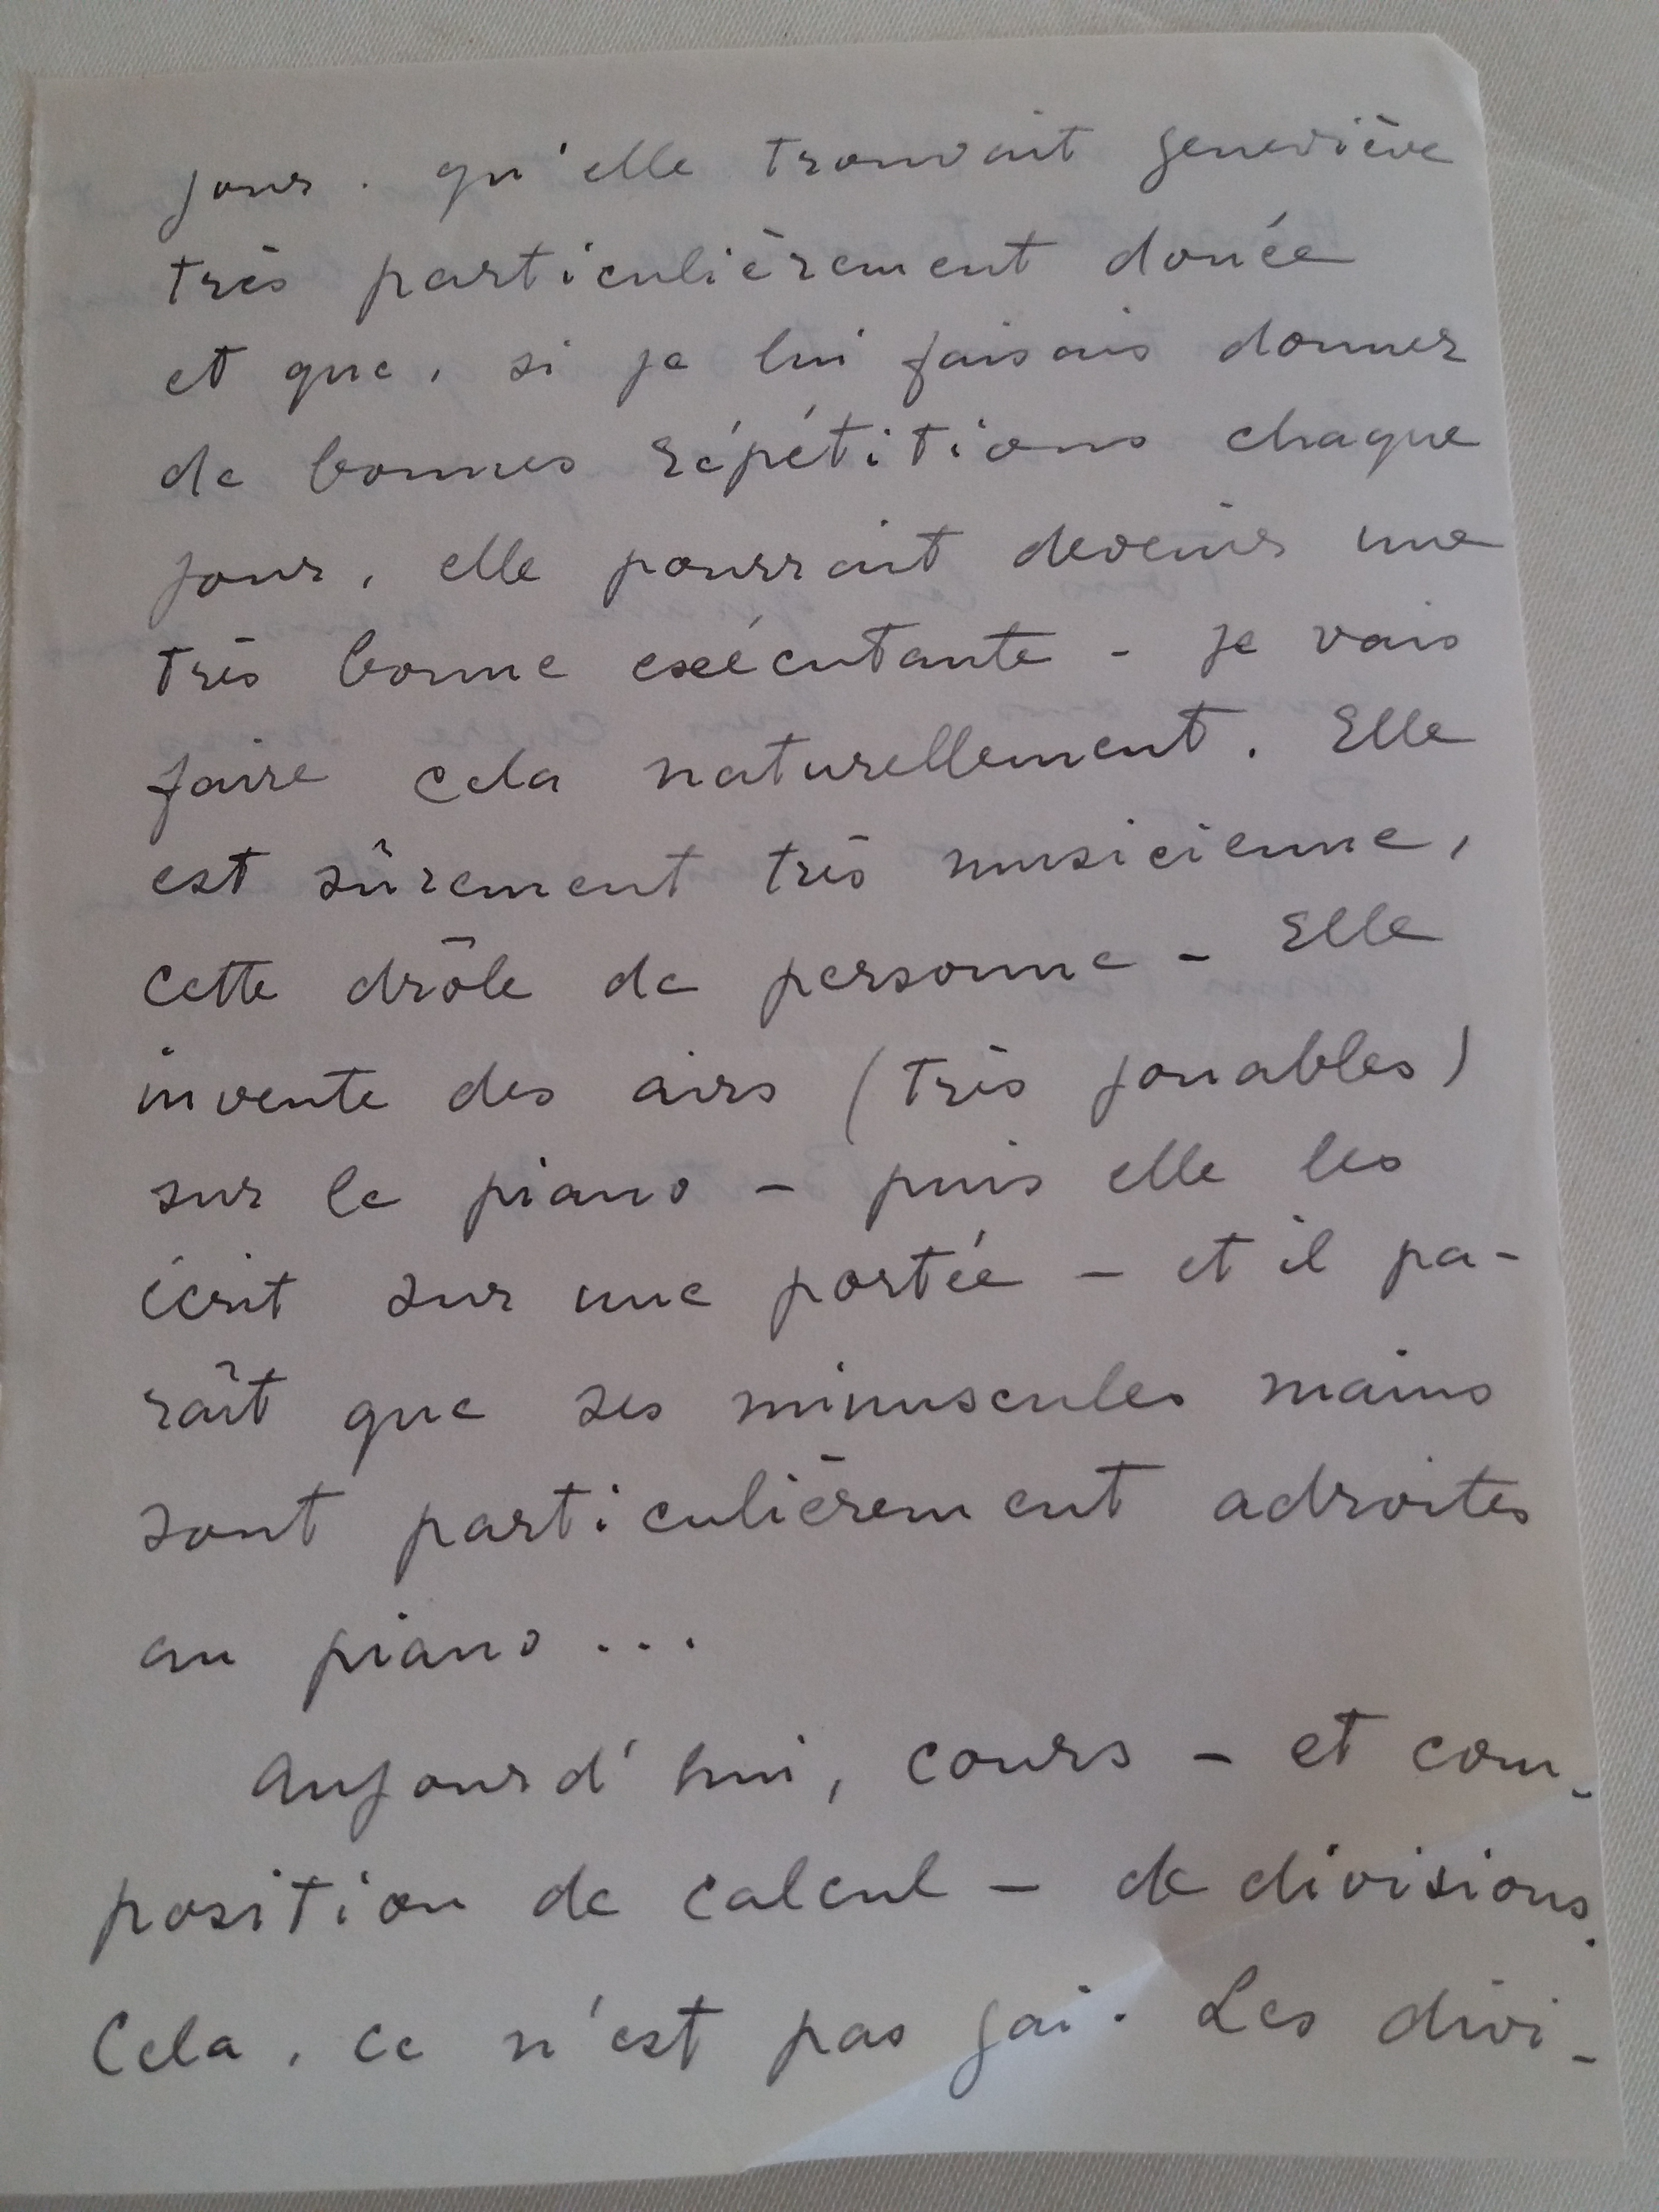 jour. qu'elle trouvait geneviève
très particulièrement douée
et que, si je lui faisais donner
de bonnes répétitions chaque
jour, elle pourrait devenir une
très bonne exécutante - je vais
faire cela naturellement. Elle
est sûrement très musicienne,
cette drôle de personne - Elle
invente des airs (très jouables)
sur le piano - puis elle les
écrit sur une portée - et il pa-
raît que ses minuscules mains
sont particulièrement adroites
au piano ...
Aujourd'hui, cours - et com-
position de calcul - de divisions.
Cela, ce n'est pas gai. Les divi-